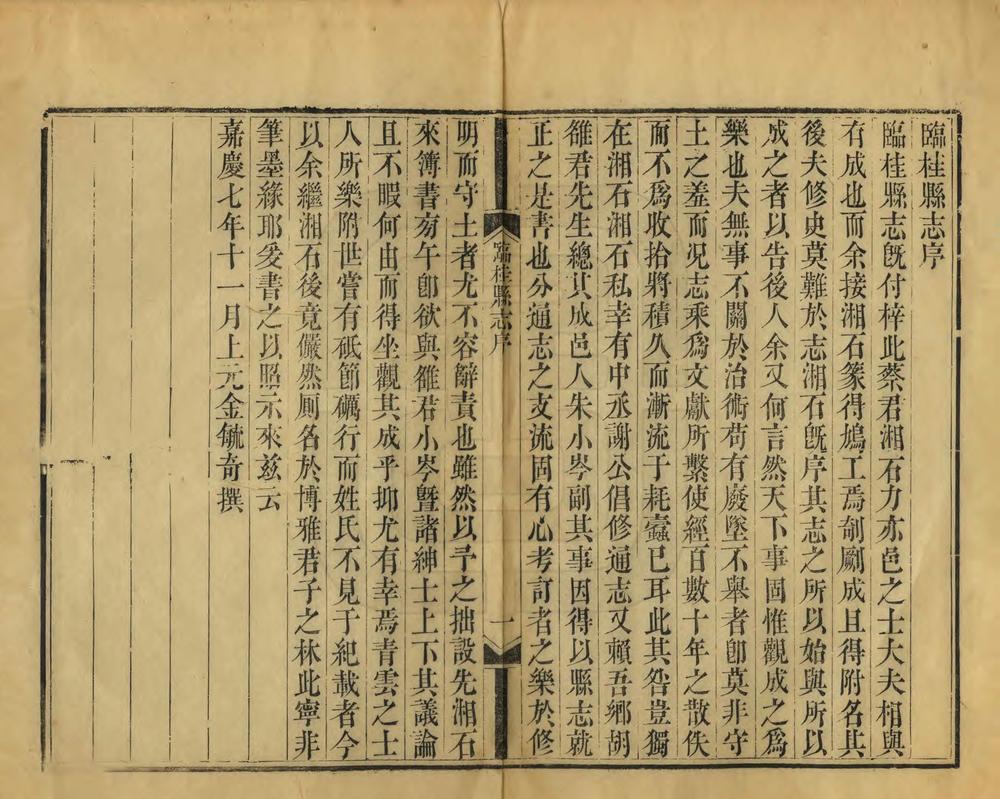 臨桂縣志序
臨桂縣志旣付梓此蔡君湘石力亦邑之士大夫相與
有成也而余接湘石篆得鳩工焉剞劂成且得附名其
後夫修史莫難於志湘石旣序其志之所以始與所以
成之者以告後人余又何言然天下事固惟觀成之爲
樂也夫無事不關於治術苟有廢墜不舉者卽莫非守
土之羞而况志乘爲文獻所繫使經百數十年之散佚
而不爲收拾將積久而漸流于耗蠹已耳此其咎豈獨
在湘石湘石私幸有中丞謝公倡修通志又賴吾鄉胡
雒君先生總其成邑人朱小岑副其事因得以縣志就
正之是書也分通志之支流固有心考訂者之樂於修
臨桂縣志序
一
明而守土者尤不容辭責也雖然以予之拙設先湘石
來簿書旁午卽欲與雒君小岑曁諸紳士上下其議論
且不暇何由而得坐觀其成乎抑尤有幸焉青雲之士
人所樂附世嘗有砥節礪行而姓氏不見于紀載者今
以余繼湘石後竟儼然厠名於博雅君子之林此寧非
筆墨緣耶爰書之以照示來兹云
嘉慶七年十一月上元金毓奇撰